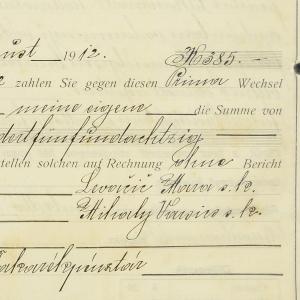 ust 1912. K 385.
zahlen Sie gegen diesen Prima Wechsel
meine eigene die Summe von
dertfünfundachtzig
stellen solchen auf Rechnung ohne Bericht
Levačić Mara s.k.
Mihaly Vranics s.k.
Takarékpénztár